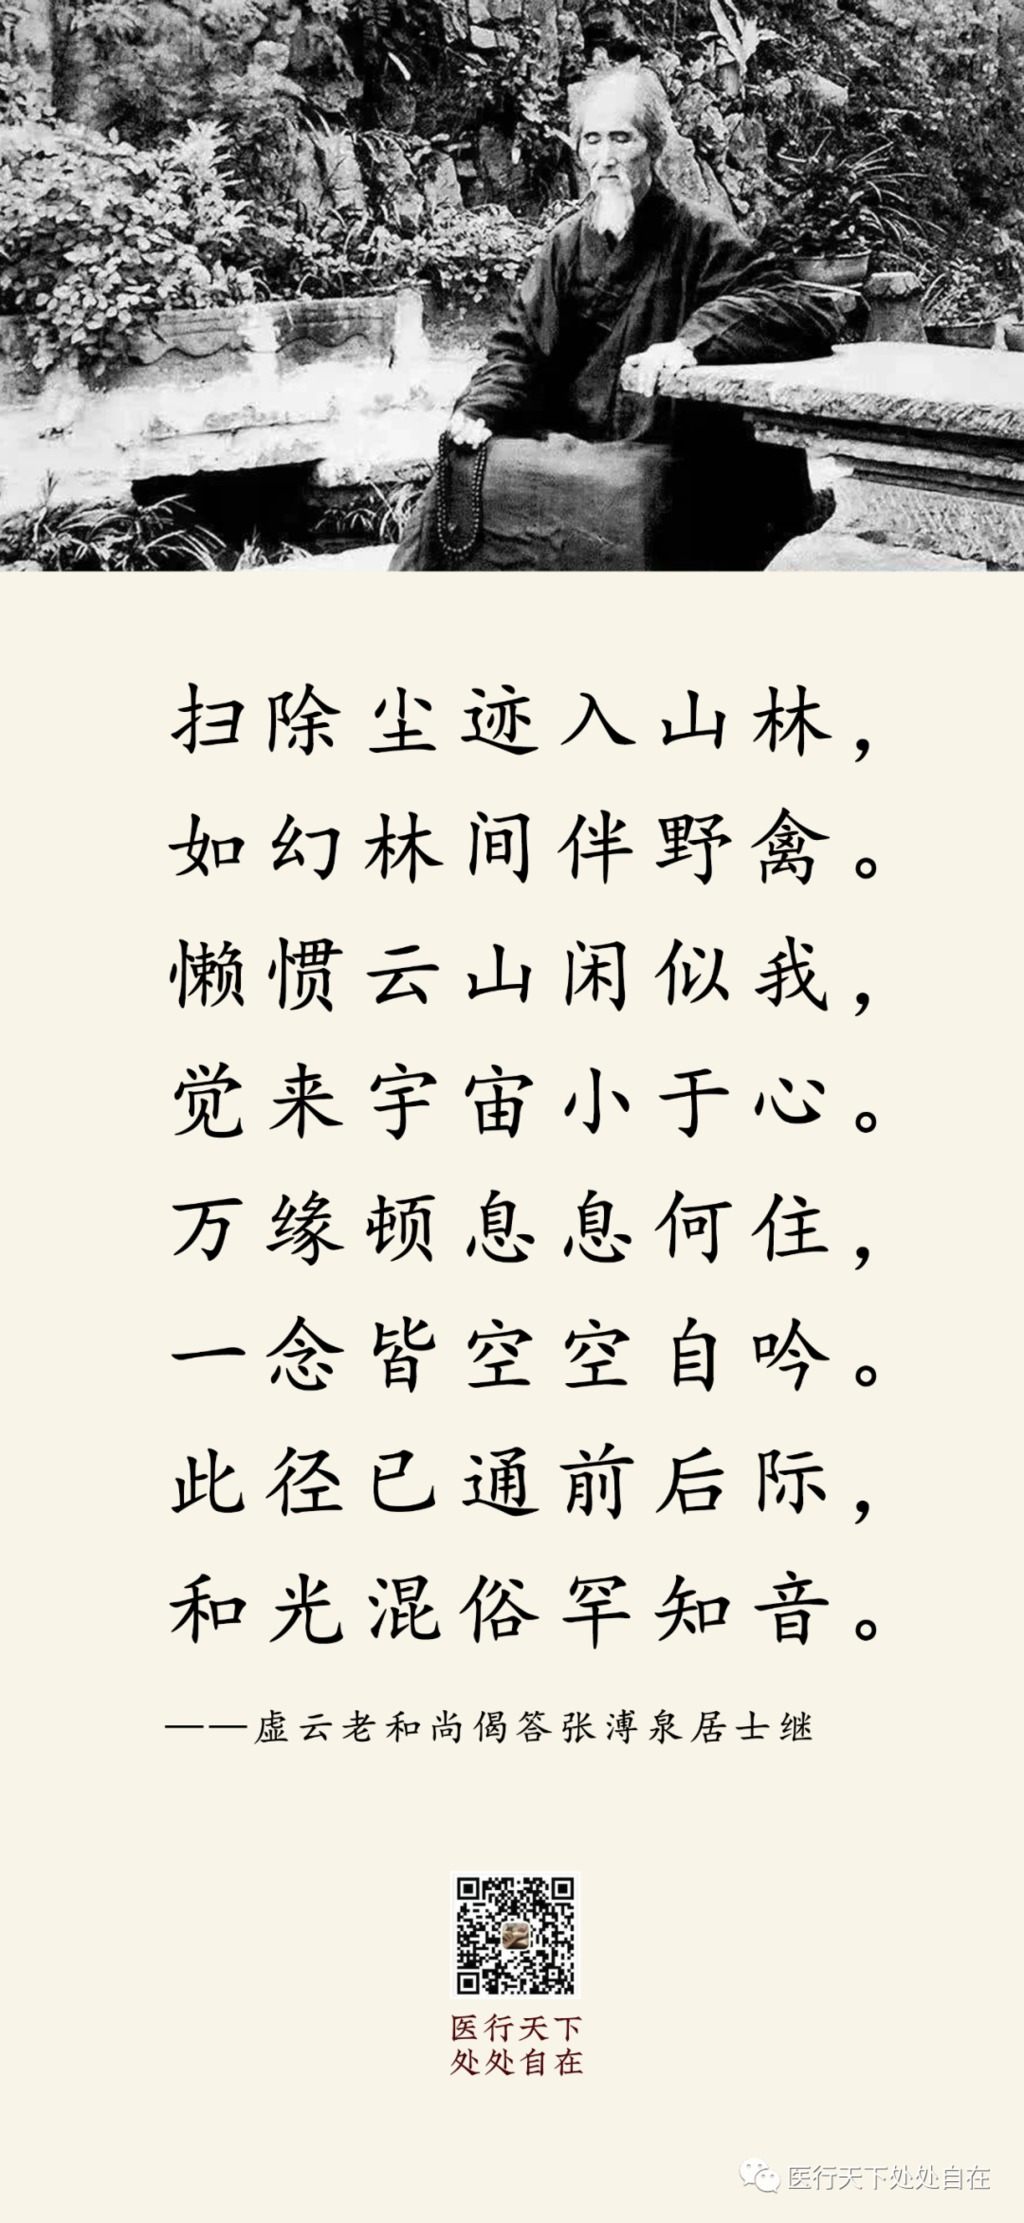 扫除尘迹入山林，
如幻林间伴野禽。
懒惯云山闲似我，
觉来宇宙小于心。
万缘顿息息何住，
一念皆空空自吟。
此径已通前后际，
和光混俗罕知音。
——虚云老和尚偈答张溥泉居士继
医行天下
处处自在
医行天下处处自在